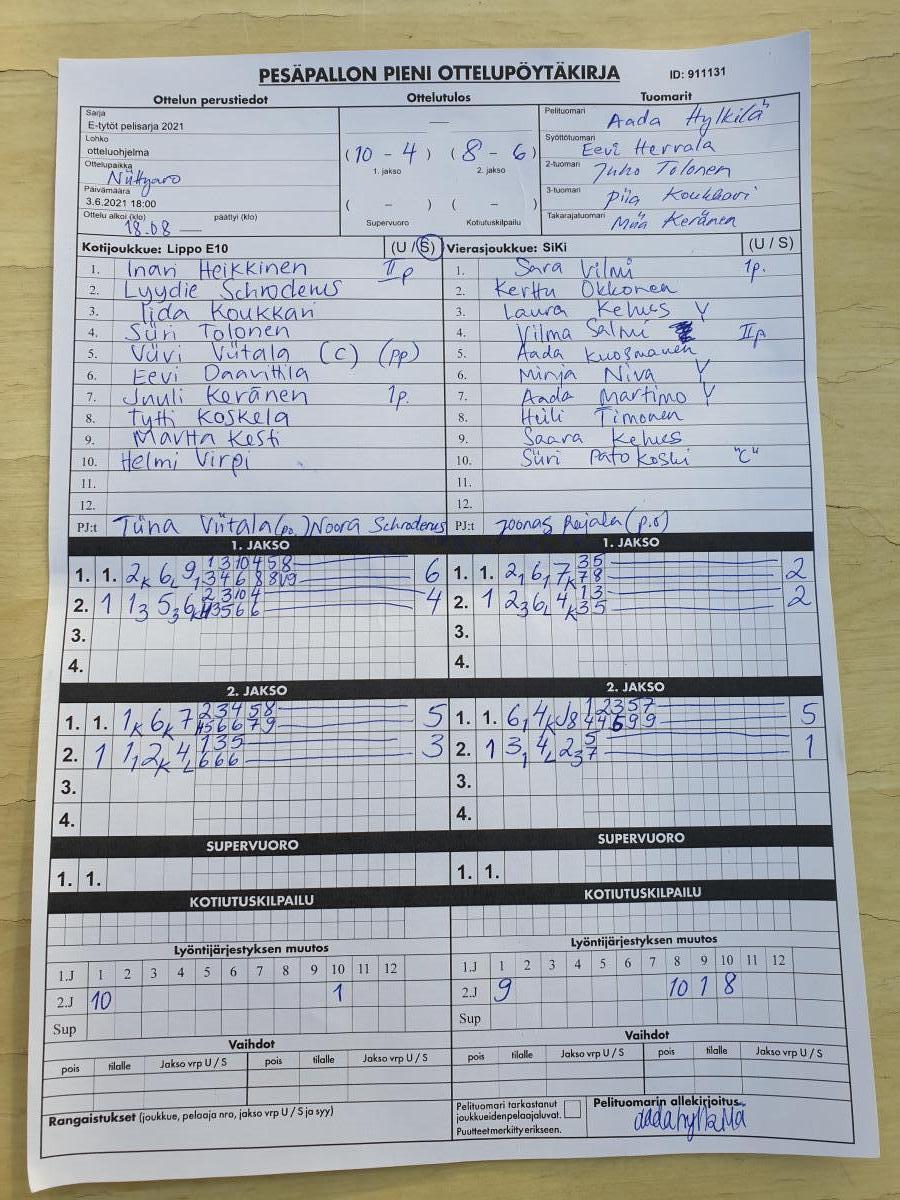 PESÄPALLON PIENI OTTELUPÖYTÄKIRJA ID: 911131
Ottelun perustiedot Ottelutulos Tuomarit
Sarja
E-tytöt pelisarja 2021
Lohko
otteluohjelma
Ottelupaikka
Päivämäärä
3.6.2021 18:00
Ottelu alkoi (klo) 18.08 päättyi (klo) —
(10 - 4) (8 - 6)
1. jakso 2. jakso
( - ) ( - )
Supervuoro Kotiutuskilpailu
Pelituomari Aada Hylkilä
Syöttötuomari Eevi Herrala
2-tuomari Juho Tolonen
3-tuomari Piia Koukkari
Takarajatuomari Miia Keränen
Kotijoukkue: Lippo E10 (U / S)
1. Inari Heikkinen IIp
2. Lyydie Schroderus
3. Iida Koukkari
4. Siiri Tolonen
5. Viivi Viitala (C) (pp)
6. Eevi Daavittila
7. Juuli Keränen 1p.
8. Tytti Koskela
9. Martta Kesti
10. Helmi Virpi
11.
12.
PJ:t Tiina Viitala (po.) Noora Schroderus
Vierasjoukkue: SiKi (U / S)
1. Sara Vilmi 1p.
2. Kerttu Okkonen
3. Laura Kehus Y
4. Vilma Salmi IIp
5. Aada Kuosmanen
6. Minja Niva Y
7. Aada Martimo Y
8. Heili Timonen
9. Saara Kehus
10. Siiri Patokoski "C"
11.
12.
PJ:t Joonas Rajala (p.o)
1. JAKSO 1. JAKSO
1. 1. 6
2. 1 4
3.
4.
1. 1. 2
2. 1 2
3.
4.
2. JAKSO 2. JAKSO
1. 1. 5
2. 1 3
3.
4.
1. 1. 5
2. 1 1
3.
4.
SUPERVUORO SUPERVUORO
1. 1. 1. 1.
KOTIUTUSKILPAILU KOTIUTUSKILPAILU
Lyöntijärjestyksen muutos
1.J 1 2 3 4 5 6 7 8 9 10 11 12
2.J 10 1
Sup
Lyöntijärjestyksen muutos
1.J 1 2 3 4 5 6 7 8 9 10 11 12
2.J 9 10 1 8
Sup
Vaihdot Vaihdot
pois tilalle Jakso vrp U / S pois tilalle Jakso vrp U / S
pois tilalle Jakso vrp U / S pois tilalle Jakso vrp U / S
Rangaistukset (joukkue, pelaaja nro, jakso vrp U / S ja syy)
Pelituomari tarkastanut
joukkueidenpelaajaluvat.
Puutteet merkitty erikseen.
Pelituomarin allekirjoitus
aadahylkilä